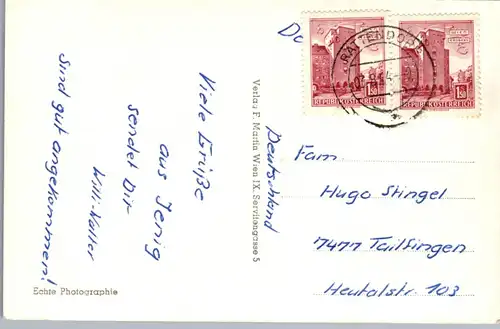 Viele Grüße
aus Jenig
sendet Dir
Willi-Walter
Sind gut angekommen!
Echte Photographie
Verlag F. Martin Wien IX. Servitengasse 5
Deutschland
RATTENDORF
REPUBLIK ÖSTERREICH
REPUBLIK ÖSTERREICH
Fam.
Hugo Stingel
7477 Tailfingen
Heutalstr. 103